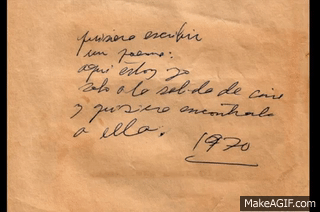 quisiera escribir
un poema:
aqui estoy yo
solo a la salida de cine
y quisiera encontrarla
a ella.
1970
MakeAGIF.com